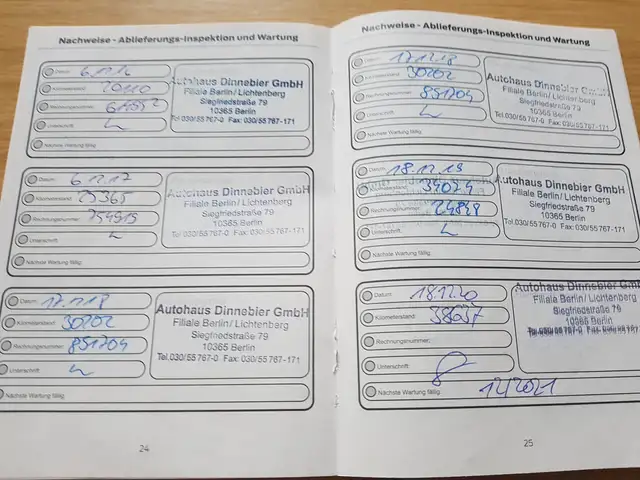 Nachweise - Ablieferungs-Inspektion und Wartung
Datum: 6.12.16
Kilometerstand: 20110
Rechnungsnummer:
Unterschrift:
Nächste Wartung fällig:
Autohaus Dinnebier GmbH
Filiale Berlin/ Lichtenberg
Siegfriedstraße 79
10365 Berlin
Tel.030/55 767-0 Fax: 030/55 767-171
Datum: 6.12.17
Kilometerstand: 25365
Rechnungsnummer: 754915
Unterschrift:
Nächste Wartung fällig:
Autohaus Dinnebier GmbH
Filiale Berlin/ Lichtenberg
Siegfriedstraße 79
10365 Berlin
Tel.030/55 767-0 Fax: 030/55 767-171
Datum: 17.12.18
Kilometerstand: 30202
Rechnungsnummer: 851704
Unterschrift:
Nächste Wartung fällig:
Autohaus Dinnebier GmbH
Filiale Berlin/ Lichtenberg
Siegfriedstraße 79
10365 Berlin
Tel.030/55 767-0 Fax: 030/55 767-171
24
Nachweise - Ablieferungs-Inspektion und Wartung
Datum: 17.12.18
Kilometerstand: 30202
Rechnungsnummer: 851704
Unterschrift:
Nächste Wartung fällig:
Autohaus Dinnebier GmbH
Filiale Berlin/ Lichtenberg
Siegfriedstraße 79
10365 Berlin
Tel.030/55 767-0 Fax: 030/55 767-171
Datum: 18.12.19
Kilometerstand: 34074
Rechnungsnummer: 24848
Unterschrift:
Nächste Wartung fällig:
Autohaus Dinnebier GmbH
Filiale Berlin/ Lichtenberg
Siegfriedstraße 79
10365 Berlin
Tel.030/55 767-0 Fax: 030/55 767-171
Datum: 18.12.20
Kilometerstand: 38037
Rechnungsnummer:
Unterschrift:
Nächste Wartung fällig: 12/2021
Autohaus Dinnebier GmbH
Filiale Berlin/ Lichtenberg
Siegfriedstraße 79
10365 Berlin
25